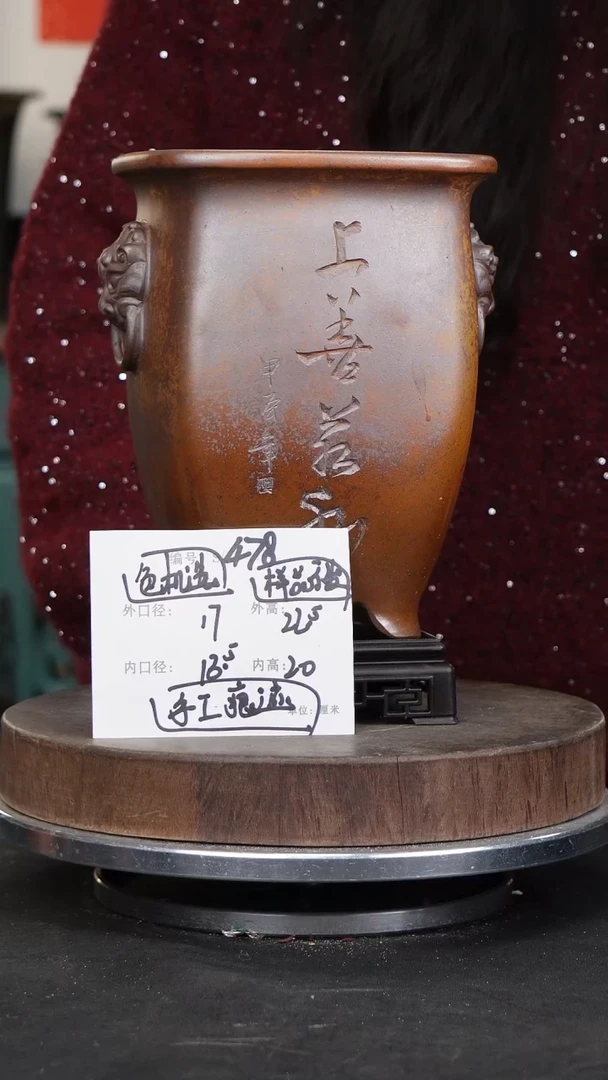 上善若水
甲辰年
编号: 478
色机选 样品不发
外口径: 17 外高: 22.5
内口径: 13.5 内高: 20
手工痕迹 单位: 厘米